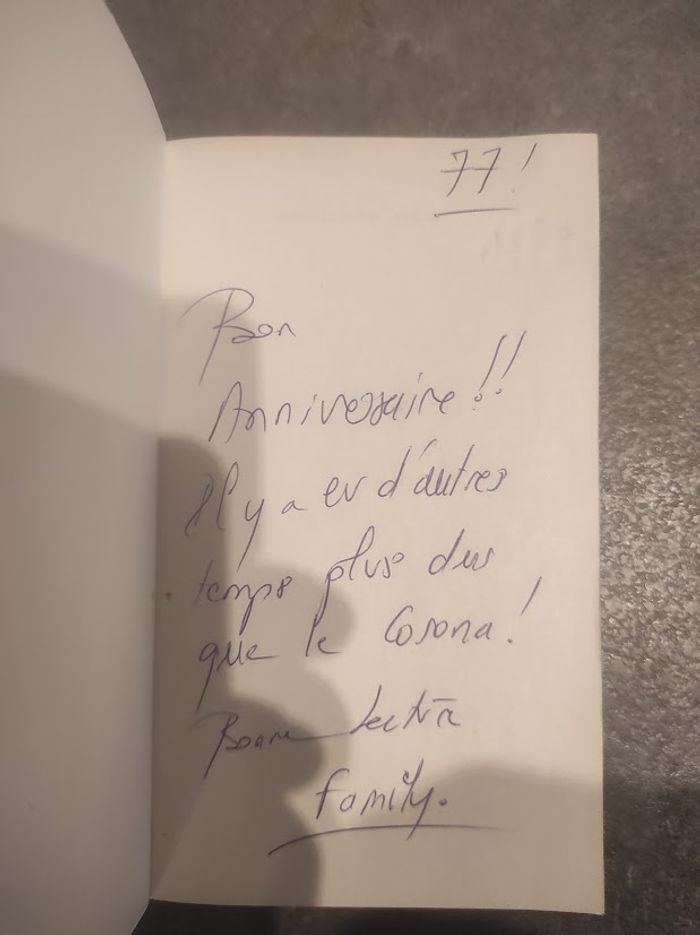 77!
Bon
Anniversaire !!
Il y a eu d'autres
temps plus durs
que le Corona!
Bonne Lecture
family.